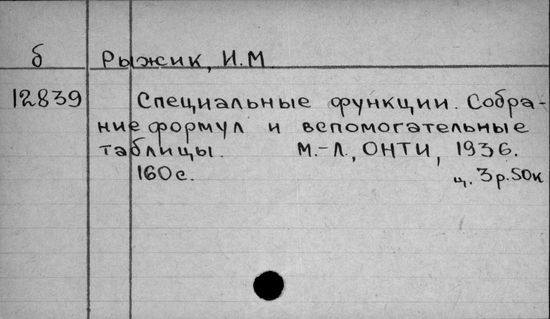 б Рыжик, И.М
12839 Специальные функции. Собра-
ние формул и вспомогательные
таблицы. М.-Л., ОНТИ, 1936.
160с. ц. 3р.50к